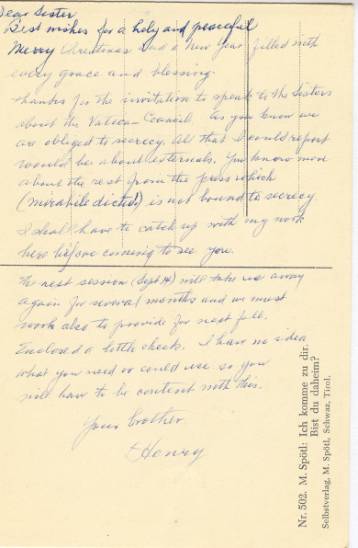 Dear Sister
Best wishes for a holy and peaceful
Merry Christmas and a New Year filled with
every grace and blessing.
Thanks for the invitation to speak to the Sisters
about the Vatican Council. As you know we
are obliged to secrecy. All that I could report
would be about externals. You know more
about the rest from the press which
(mirabile dictu) is not bound to secrecy
I shall have to catch up with my work
here before coming to see you.
The next session (Sept 14) will take me away
again for several months and we must
work also to provide for next fall.
Enclosed a little check. I have no idea
what you need or could use so you
will have to be content with this.
Your brother
Henry
Nr. 502. M. Spötl: Ich komme zu dir.
Bist du daheim?
Selbstverlag, M. Spötl, Schwaz, Tirol.